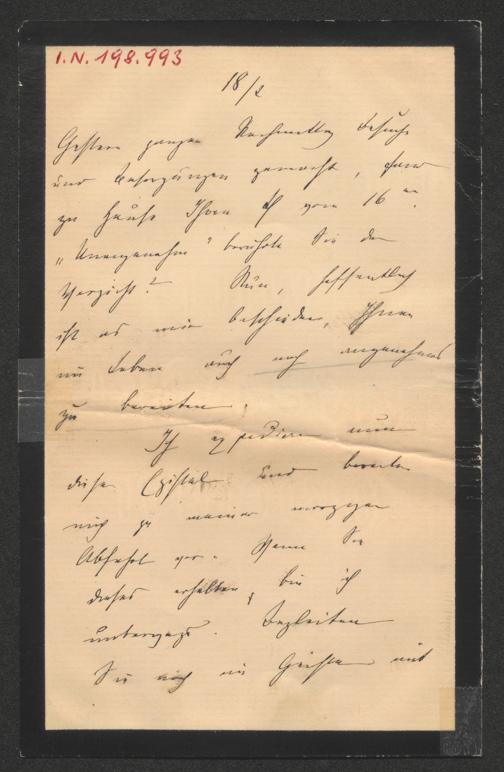 I.N. 198.993
18/2
Gestern ganzen Nachmittag Besuche
und Besorgungen gemacht, fand
zu Hause Ihren vom 16ten.
„Unangenehm" berührte Sie der
Verzicht? Nun, hoffentlich
ist es mir beschieden, Ihnen
im Leben auch noch angenehmes
zu bereiten.
Ich expediere nun
diese Epistel und bereite
mich zu meiner morgigen
Abfahrt vor. Wenn Sie
dieses erhalten, bin ich
unterwegs. Begleiten
Sie mich im Geiste mit